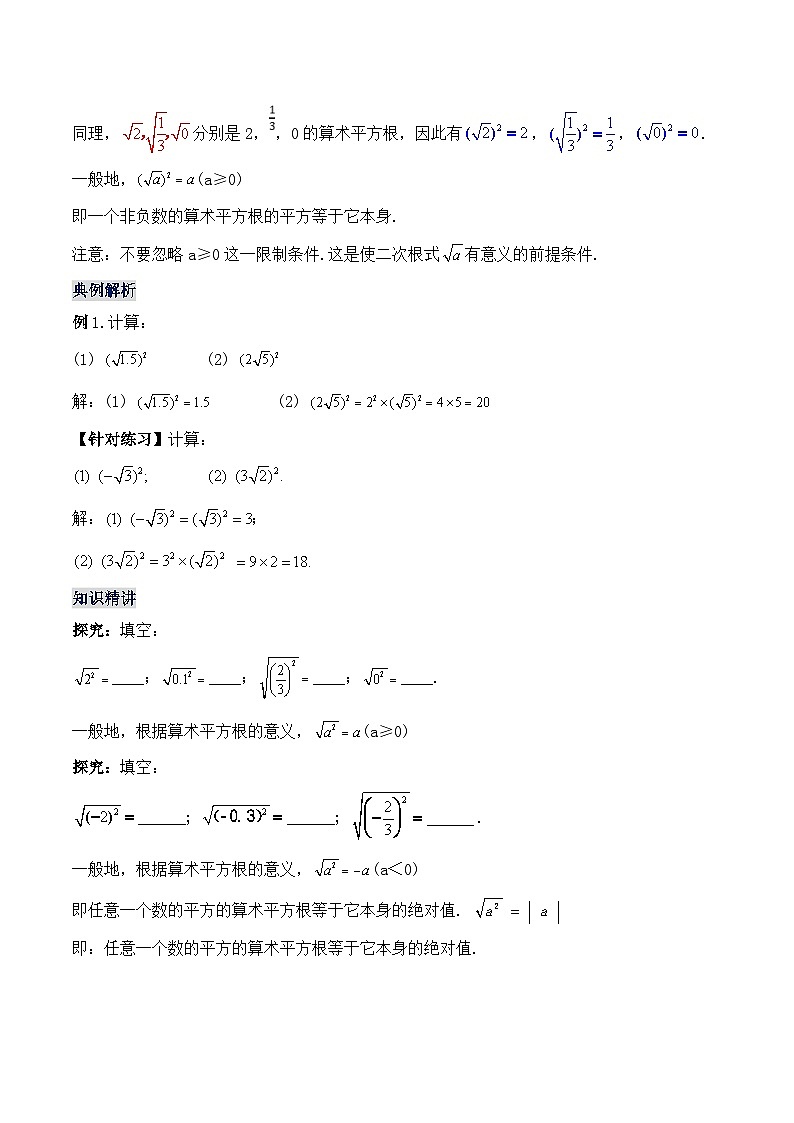 同理，√2,√(1/3),√0分别是2，1/3，0的算术平方根，因此有(√2)²=2，(√(1/3))²=1/3，(√0)²=0.
一般地，(√a)²=a(a≥0)
即一个非负数的算术平方根的平方等于它本身.
注意：不要忽略a≥0这一限制条件.这是使二次根式√a有意义的前提条件.
典例解析
例1.计算：
(1) (√1.5)² (2) (2√5)²
解：(1) (√1.5)²=1.5 (2) (2√5)²=2²×(√5)²=4×5=20
【针对练习】计算：
(1) (−√3)²; (2) (3√2)².
解：(1) (−√3)²=(√3)²=3;
(2) (3√2)²=3²×(√2)² =9×2=18.
知识精讲
探究：填空：
√2²=____；√0.1²=____；√(2/3)²=____；√0²=____.
一般地，根据算术平方根的意义，√a²=a(a≥0)
探究：填空：
√(−2)²=______；√(-0.3)²=______；√(−2/3)²=______.
一般地，根据算术平方根的意义，√a²=−a(a＜0)
即任意一个数的平方的算术平方根等于它本身的绝对值. √a² = | a |
即：任意一个数的平方的算术平方根等于它本身的绝对值.